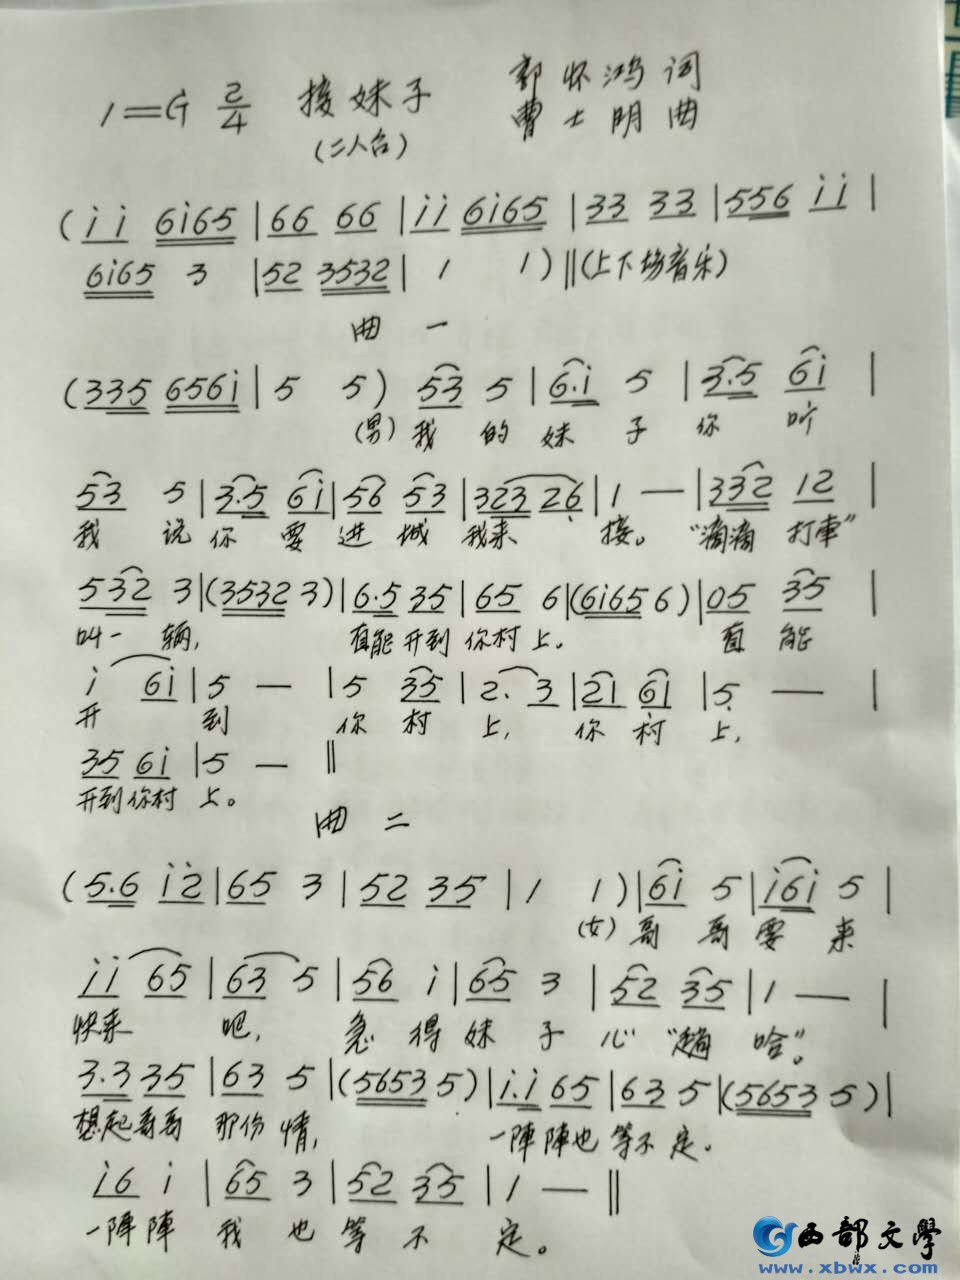 1=G 2/4 接妹子 郭怀鸿词
(二人台) 曹士明曲
(i i 6i65 | 66 66 | i i 6i65 | 33 33 | 556 i i |
6i65 3 | 52 3532 | 1 1) ‖(上下场音乐)
曲一
(335 656i | 5 5) 53 5 | 6·i 5 | 3·5 6i |
(男)我的妹子你听
53 5 | 3·5 6i | 56 53 | 323 26̣ | 1 — | 332 12 |
我说你要进城我来接。“滴滴打車”
532 3 | (3532 3) | 6·5 35 | 65 6 | (6i65 6) | 05 35 |
叫一辆, 直能开到你村上。 直能
i 6i | 5 — | 5 35 | 2· 3 | 21 6̣1 | 5̣ — |
开到你村上, 你村上,
35 6i | 5 — ‖
开到你村上。
曲二
(5·6 i2̇ | 65 3 | 52 35 | 1 1) | 6i 5 | i6i 5 |
(女)哥哥要来
i i 65 | 63 5 | 56 i | 65 3 | 52 35 | 1 — |
快来吧, 急得妹子心“哈”。
3·3 35 | 63 5 | (5653 5) | i·i 65 | 63 5 | (5653 5) |
想起哥哥那份情, 一陣陣也等不定.
i6 i | 65 3 | 52 35 | 1 — ‖
一陣陣我也等不定。
西部文學
www.xbwx.com